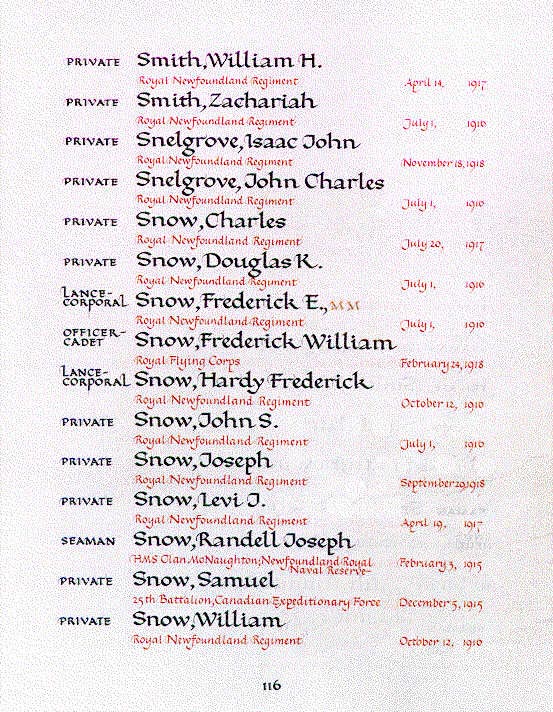 PRIVATE Smith, William H.
Royal Newfoundland Regiment April 14, 1917
PRIVATE Smith, Zachariah
Royal Newfoundland Regiment July 1, 1916
PRIVATE Snelgrove, Isaac John
Royal Newfoundland Regiment November 18, 1918
PRIVATE Snelgrove, John Charles
Royal Newfoundland Regiment July 1, 1916
PRIVATE Snow, Charles
Royal Newfoundland Regiment July 20, 1917
PRIVATE Snow, Douglas K.
Royal Newfoundland Regiment July 1, 1916
LANCE-
CORPORAL Snow, Frederick E., MM
Royal Newfoundland Regiment July 1, 1916
OFFICER-
CADET Snow, Frederick William
Royal Flying Corps February 24, 1918
LANCE-
CORPORAL Snow, Hardy Frederick
Royal Newfoundland Regiment October 12, 1916
PRIVATE Snow, John S.
Royal Newfoundland Regiment July 1, 1916
PRIVATE Snow, Joseph
Royal Newfoundland Regiment September 29, 1918
PRIVATE Snow, Levi J.
Royal Newfoundland Regiment April 19, 1917
SEAMAN Snow, Randell Joseph
HMS Clan McNaughton; Newfoundland Royal February 3, 1915
Naval Reserve
PRIVATE Snow, Samuel
25th Battalion, Canadian Expeditionary Force December 5, 1915
PRIVATE Snow, William
Royal Newfoundland Regiment October 12, 1916
116